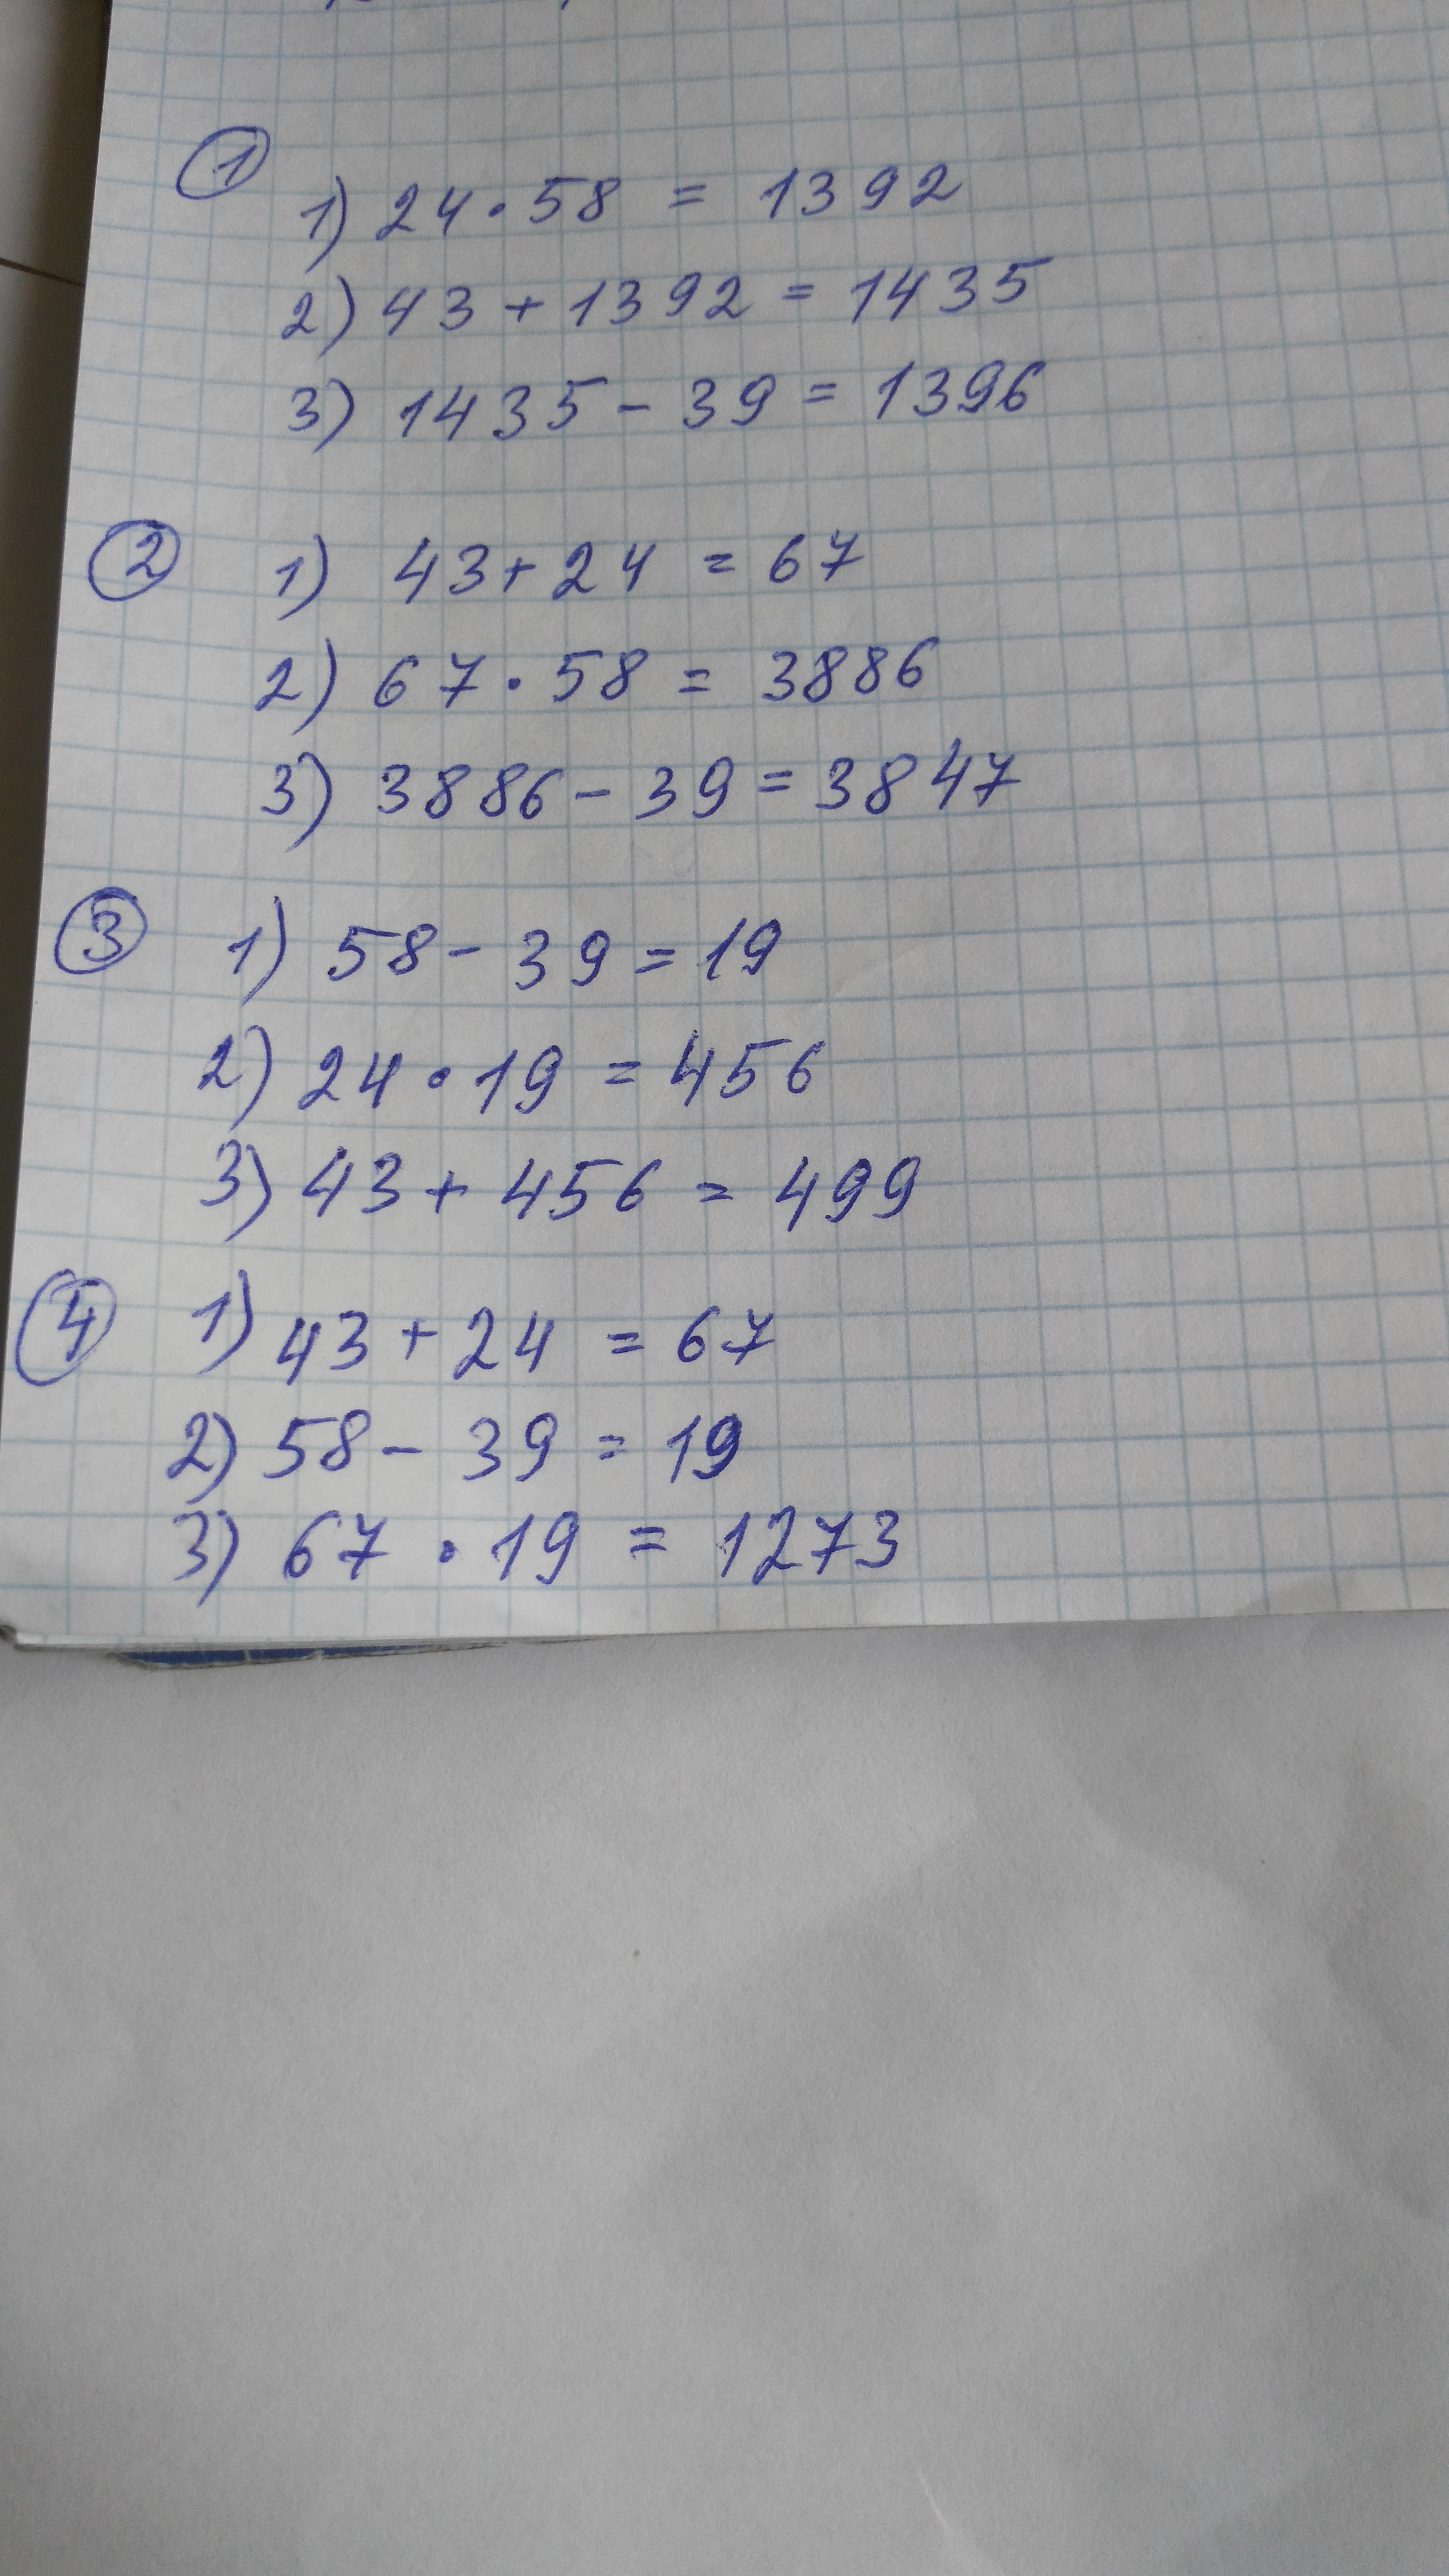 1
1) 24 · 58 = 1392
2) 43 + 1392 = 1435
3) 1435 - 39 = 1396
2
1) 43 + 24 = 67
2) 67 · 58 = 3886
3) 3886 - 39 = 3847
3
1) 58 - 39 = 19
2) 24 · 19 = 456
3) 43 + 456 = 499
4
1) 43 + 24 = 67
2) 58 - 39 = 19
3) 67 · 19 = 1273